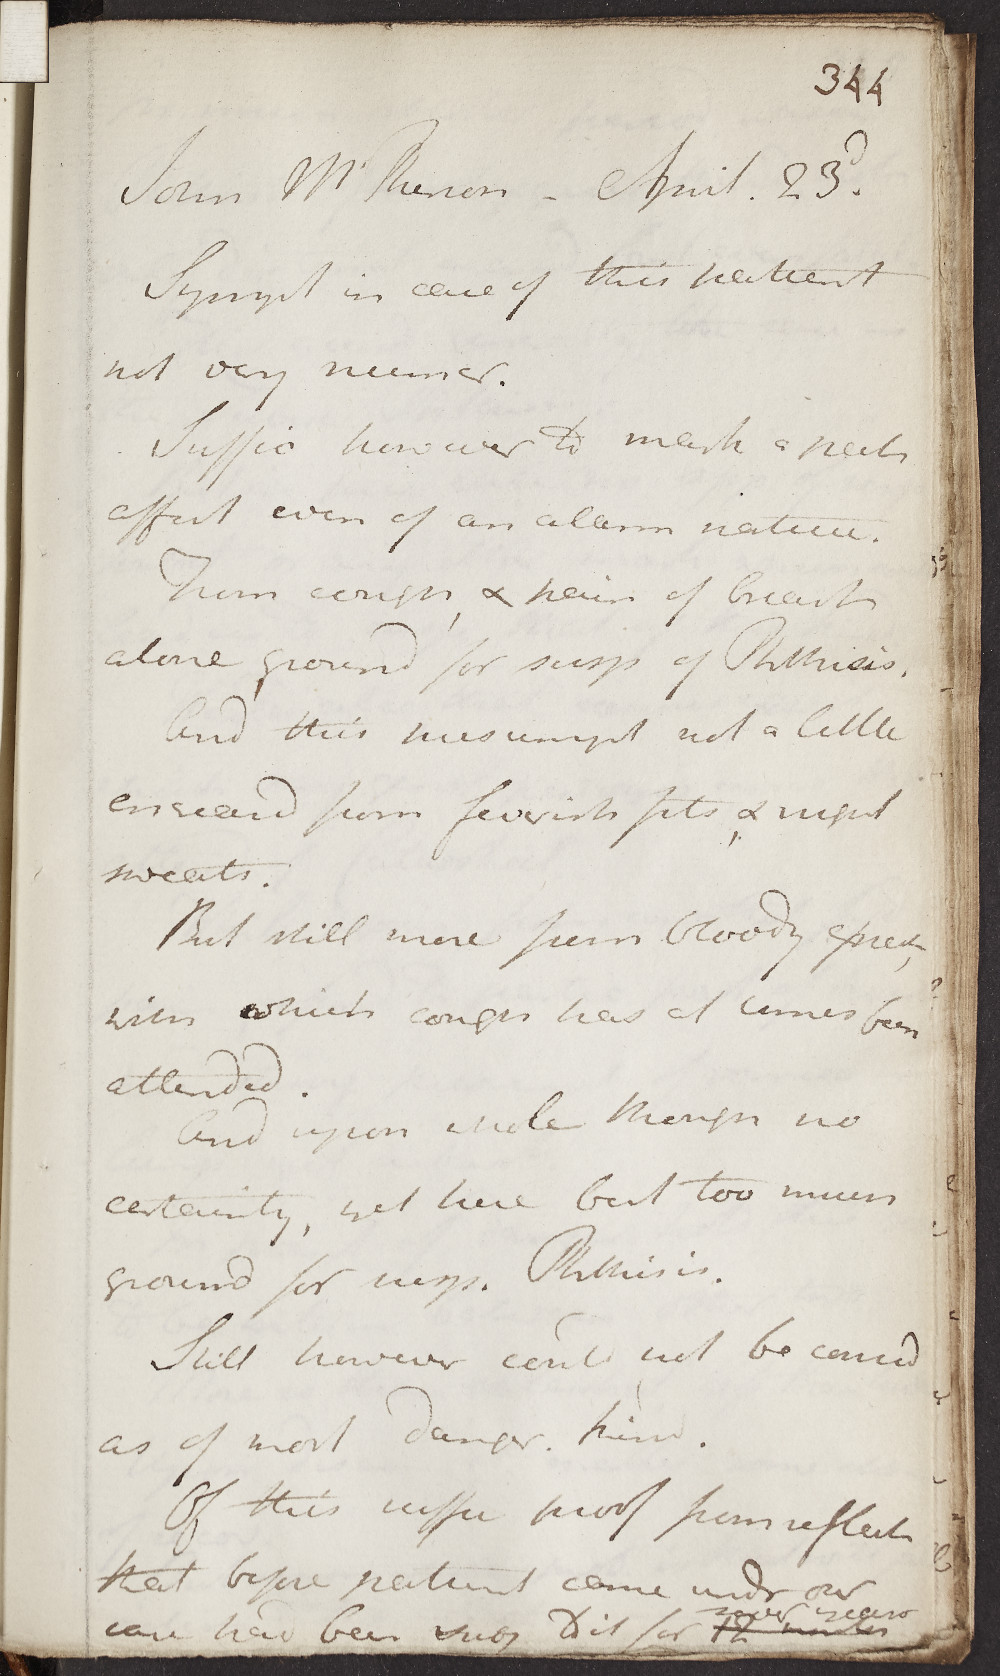 344
John McPherson - April. 23d.
Sympt in case of this patient
not very numer.
Suffic however to mark a pect
affect even of an alarm nature.
From cough, & pain of breast
alone, ground for susp of Phthisis.
And this presumpt not a little
encreasd from feverish fits, & night
sweats.
But still more from bloody expect,
with which cough has at times been
attended.
And upon whole though no
certainty, yet here but too much
ground for susp. Phthisis.
Still however could not be consid
as of most danger. kind.
Of this suffic proof from reflect
that before patient came undr our
care had been subj to it for four years
12 months